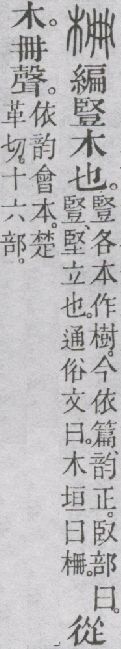 柵編豎木也。豎各本作樹。今依篇、韵正。臤部曰。豎、堅立也。通俗文曰。木垣曰柵。從
木。冊聲。依韵會本。楚革切。十六部。